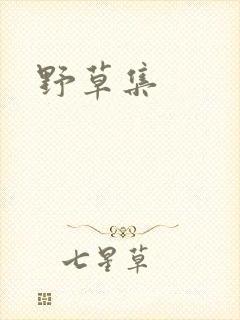 野草集
七星草